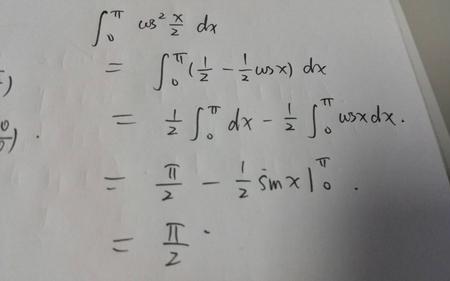 ∫₀^π cos² x/2 dx
= ∫₀^π (1/2 - 1/2 cosx) dx
) = 1/2 ∫₀^π dx - 1/2 ∫₀^π cosxdx.
). = π/2 - 1/2 sinx|₀^π .
= π/2 .